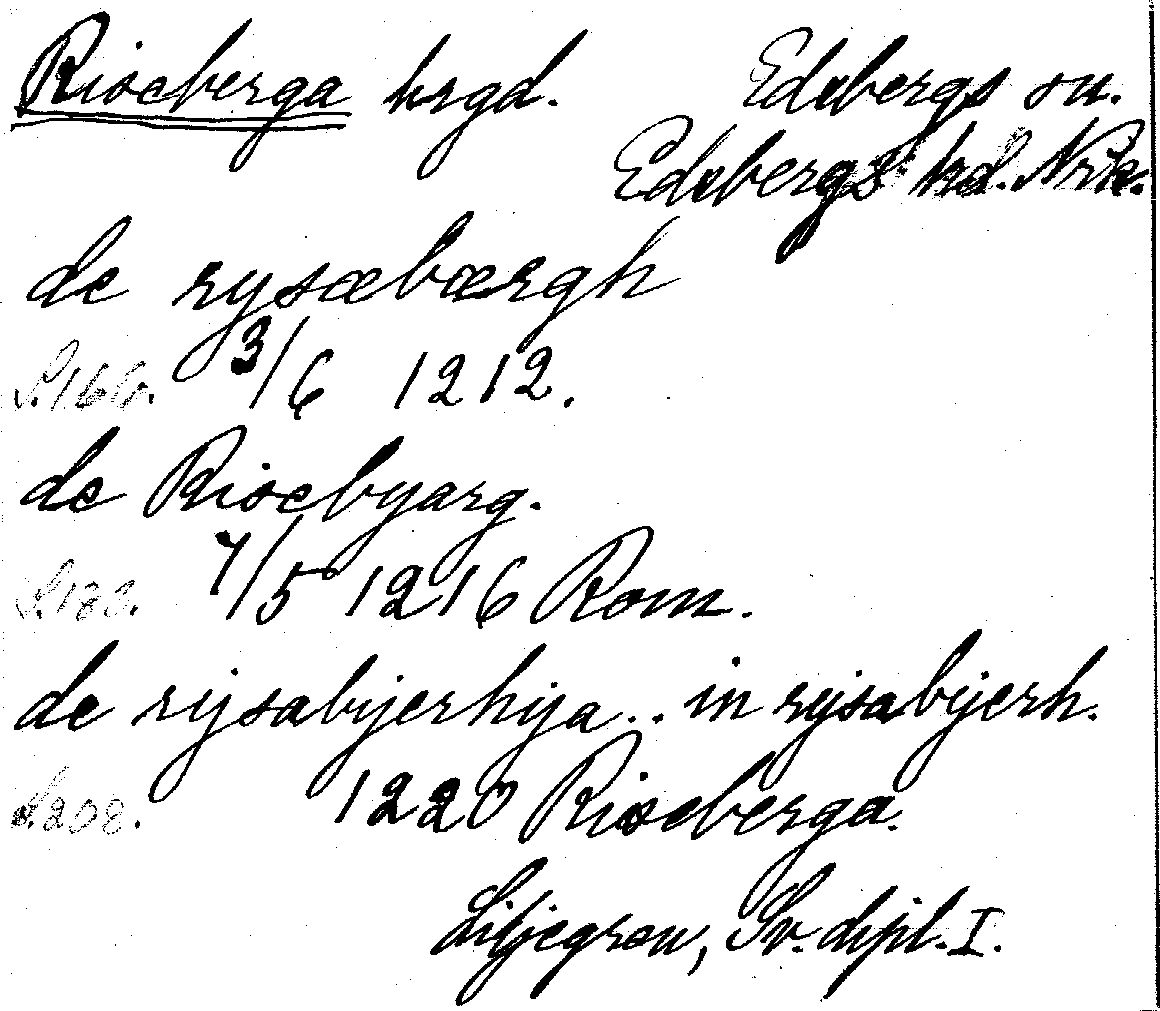 Riseberga hrgd. Edsbergs sn.
Edsbergs hd. Nrke.
de rysæbærgh
S. 166. 3/6 1212.
de Risebyarg.
S. 183. 7/5 1216 Rom.
de rijsabijerhija.. in rijsabijerh.
S. 208. 1220 Riseberga.
Liljegren, Sv. dipl. I.